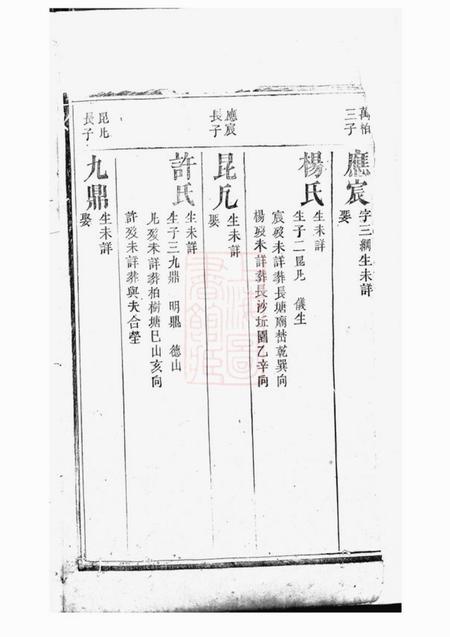 萬柏三子
應宸
字三綱生未詳
娶
楊氏
生未詳
生子二昆凡 儀生
宸歿未詳葬長塘廟嶅乾巽向
楊歿未詳葬長沙坵園乙辛向
應宸長子
昆凡
生未詳
娶
許氏
生未詳
生子三九鼎 明鼎 德山
凡歿未詳葬柏樹塘巳山亥向
許歿未詳葬與夫合塋
昆凡長子
九鼎
生未詳
娶